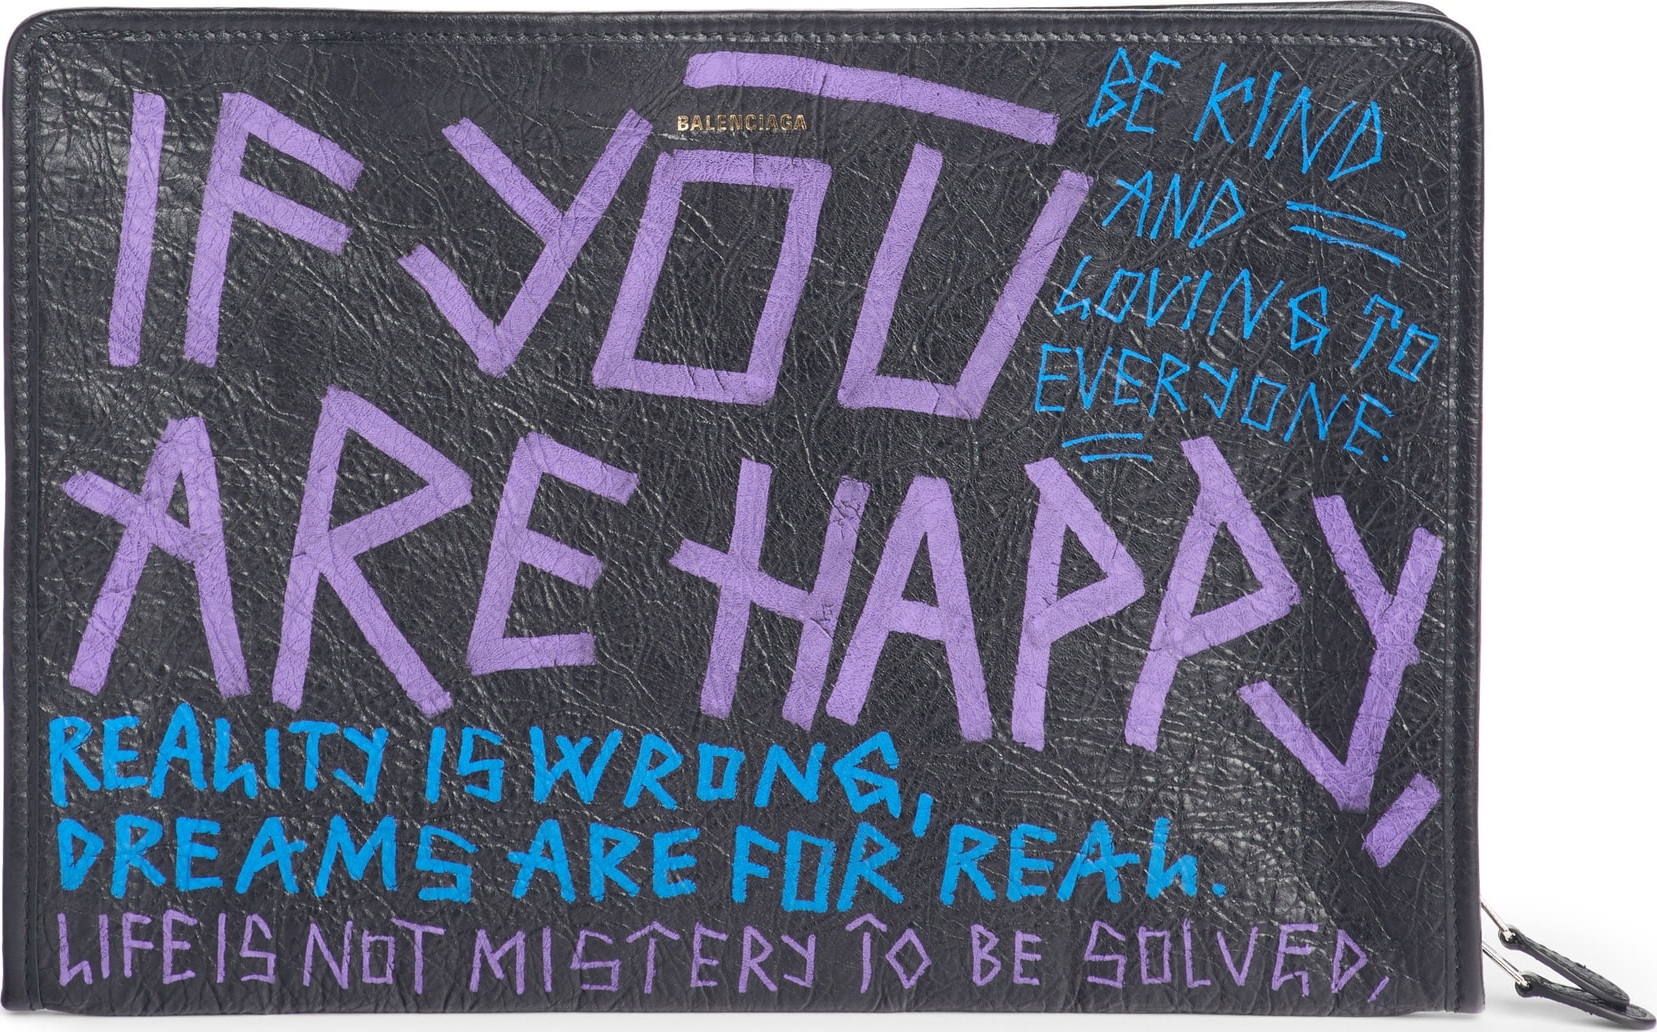 BALENCIAGA
IF YOU
ARE HAPPY,
BE KIND
AND
LOVING TO
EVERYONE.
REALITY IS WRONG,
DREAMS ARE FOR REAL.
LIFE IS NOT MISTERY TO BE SOLVED,